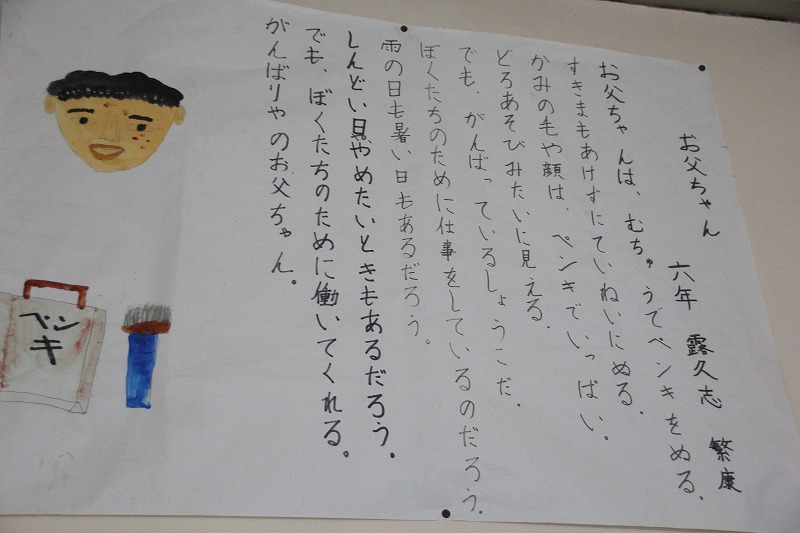 お父ちゃん
六年 露久志 繁康
お父ちゃんは、むちゅうでペンキをぬる.
すきまもあけずにていねいにぬる.
かみの毛や顔は、ペンキでいっぱい。
どろあそびみたいに見える.
でも、がんばっているしょうこだ.
ぼくたちのために仕事をしているのだろう.
雨の日も暑い日もあるだろう。
しんどい日やめたいときもあるだろう.
でも、ぼくたちのために働いてくれる.
がんばりやのお父ちゃん。
ペン
キ